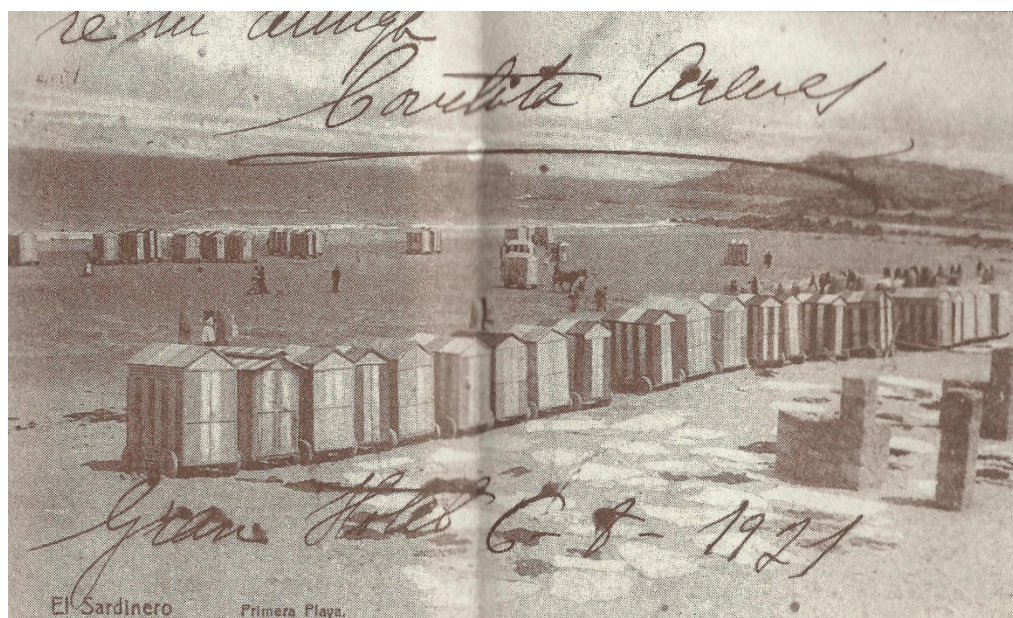 de mi amiga
Conchita Arenas
Gran Hotel 6-8-1921
El Sardinero Primera Playa.